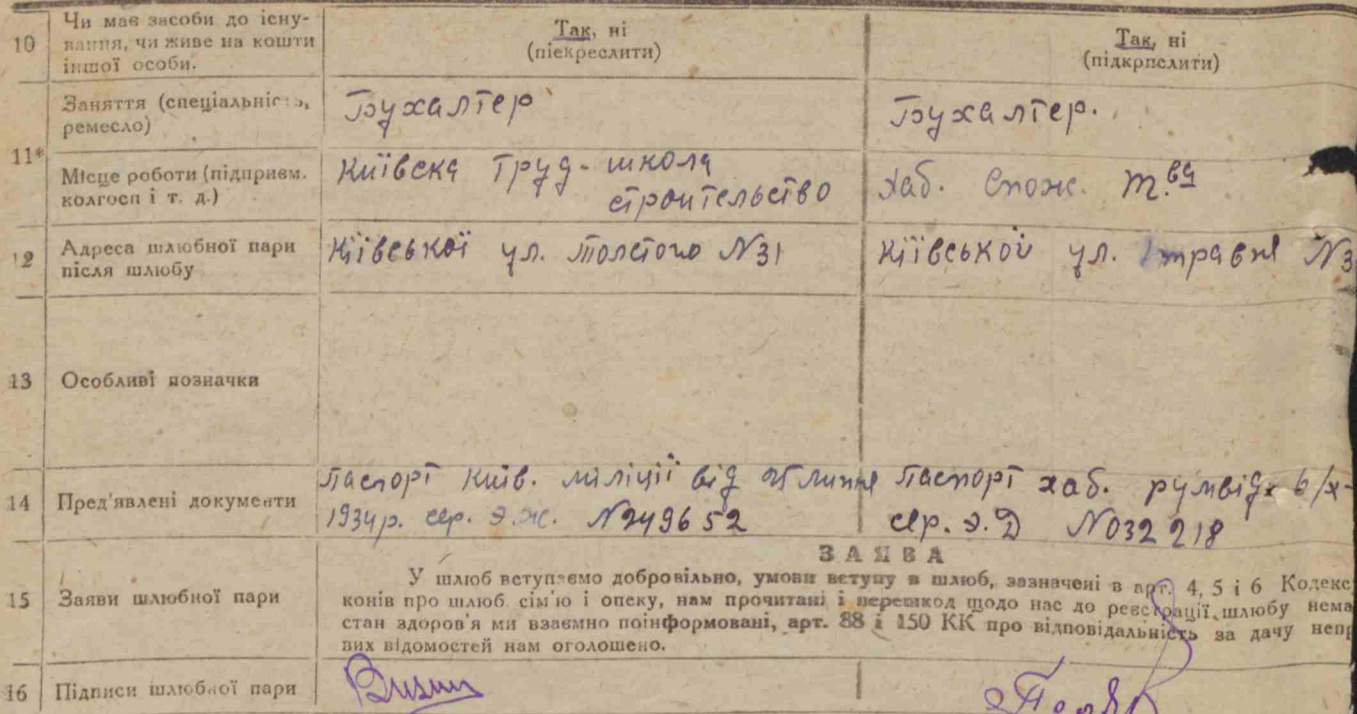 10 Чи має засоби до існу-
вання, чи живе на кошти
іншої особи.
Так, ні
(піекреслити)
Так, ні
(підкрпслити)
11*
Заняття (спеціальність,
ремесло)
Бухалтер
Бухалтер.
Місце роботи (підприєм.
колгосп і т. д.)
Київска Труд-школа
строительство
Хаб. Спож. т.ва
12 Адреса шлюбної пари
після шлюбу
Київської ул. Толстого №31
Київськой ул. 1 травня №3
13 Особливі позначки
14 Пред'явлені документи
Паспорт Київ. міліції від липня
1934р. сер. Э.Ж. №249652
Паспорт хаб. 6/х-
сер. Э.Д №032218
15 Заяви шлюбної пари
ЗАЯВА
У шлюб вступаємо добровільно, умови вступу в шлюб, зазначені в арт. 4, 5 і 6 Кодекс
конів про шлюб сім'ю і опеку, нам прочитані і перешкод щодо нас до реєстрації шлюбу нема
стан здоров'я ми взаємно поінформовані, арт. 88 і 150 КК про відповідальність за дачу непр
вих відомостей нам оголошено.
16 Підписи шлюбної пари